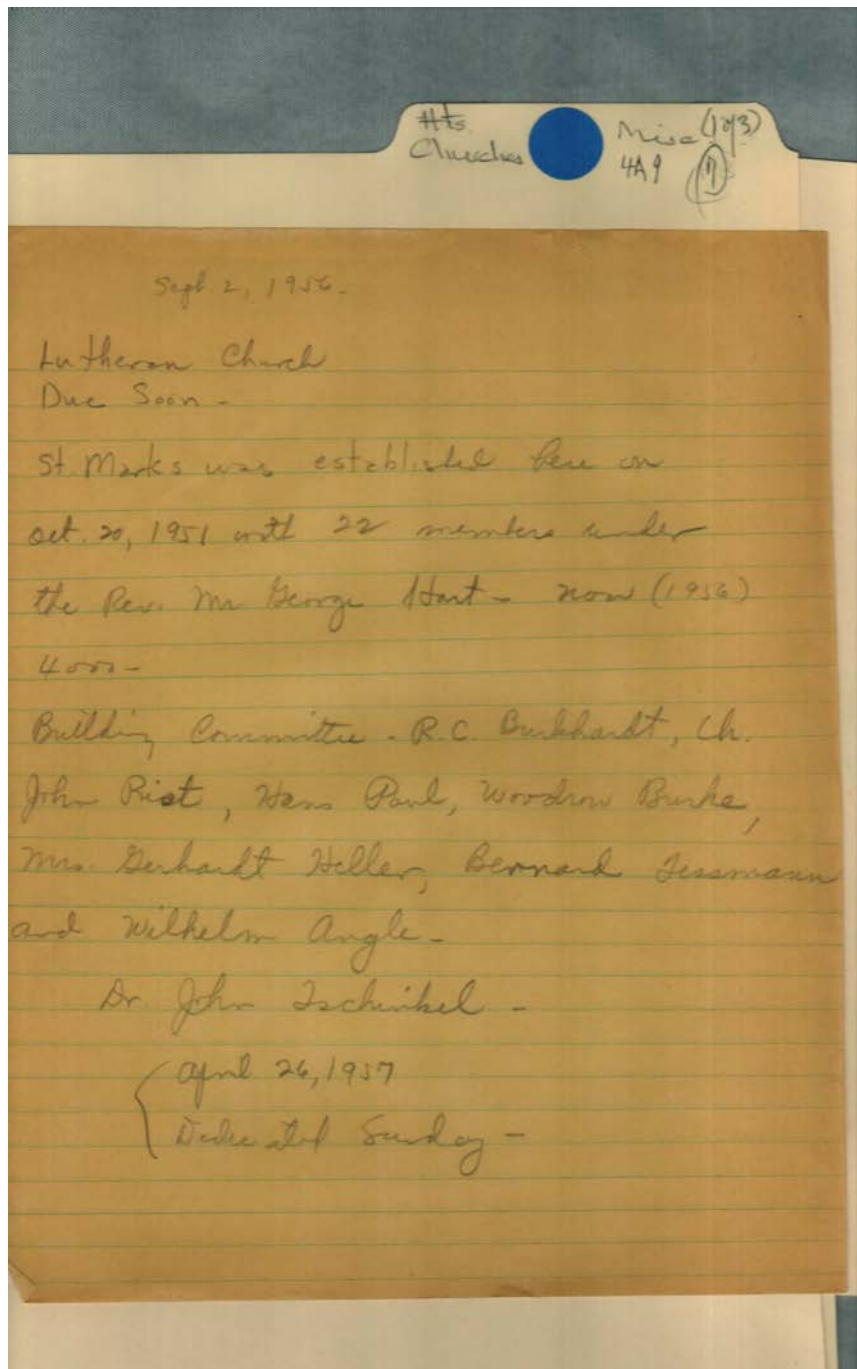 Hts. Churches
Misc (1 of 3)
4A9 (7)
Sept. 2, 1956.
Lutheran Church
Due Soon -
St. Marks was established here on
Oct. 20, 1951 with 22 members under
the Rev. Mr George Hart - now (1956)
Building Committee - R.C. Burkhardt, Ch.
John Rist, Hans Paul, Woodrow Burke,
Mrs. Gerhardt Heller, Bernard Tessmann
and Wilhelm Angle -
Dr. John Tschinkel -
April 26, 1957
Dedicated Sunday -